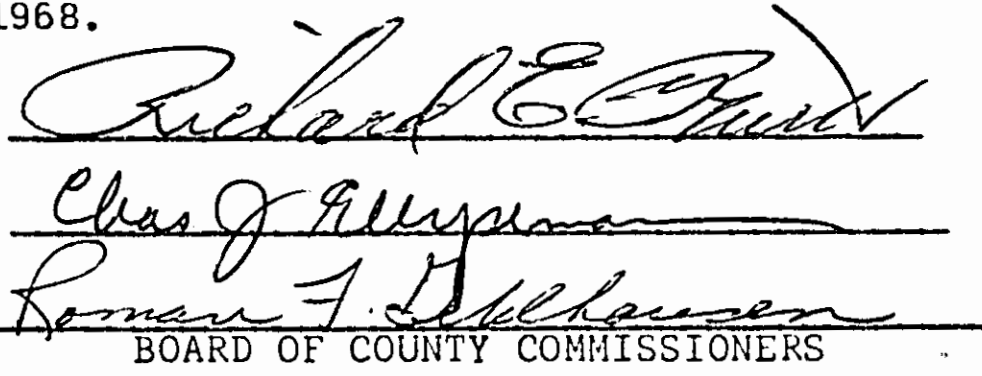 1968.
Richard E
Chas J
Roman F. Gehlhausen
BOARD OF COUNTY COMMISSIONERS